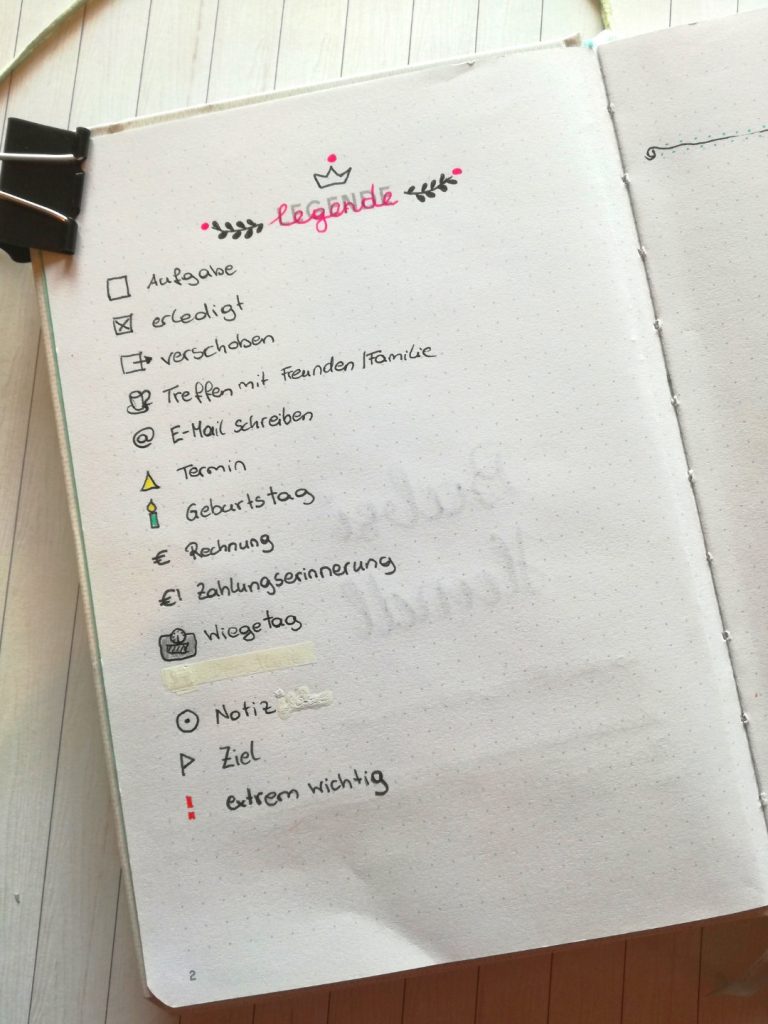 LEGENDE
legende
Aufgabe
erledigt
verschoben
Treffen mit Freunden/Familie
@ E-Mail schreiben
Termin
Geburtstag
€ Rechnung
€! Zahlungserinnerung
Wiegetag
Notiz
Ziel
! extrem wichtig
2